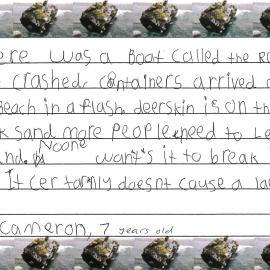 ere was a Boat called the R
crashed, containers arrived o
Beach in a flash. deerskin is on th
k sand more People need to Le
and. Noone want's it to break
It certainly doesnt cause a la
Cameron, 7 years old